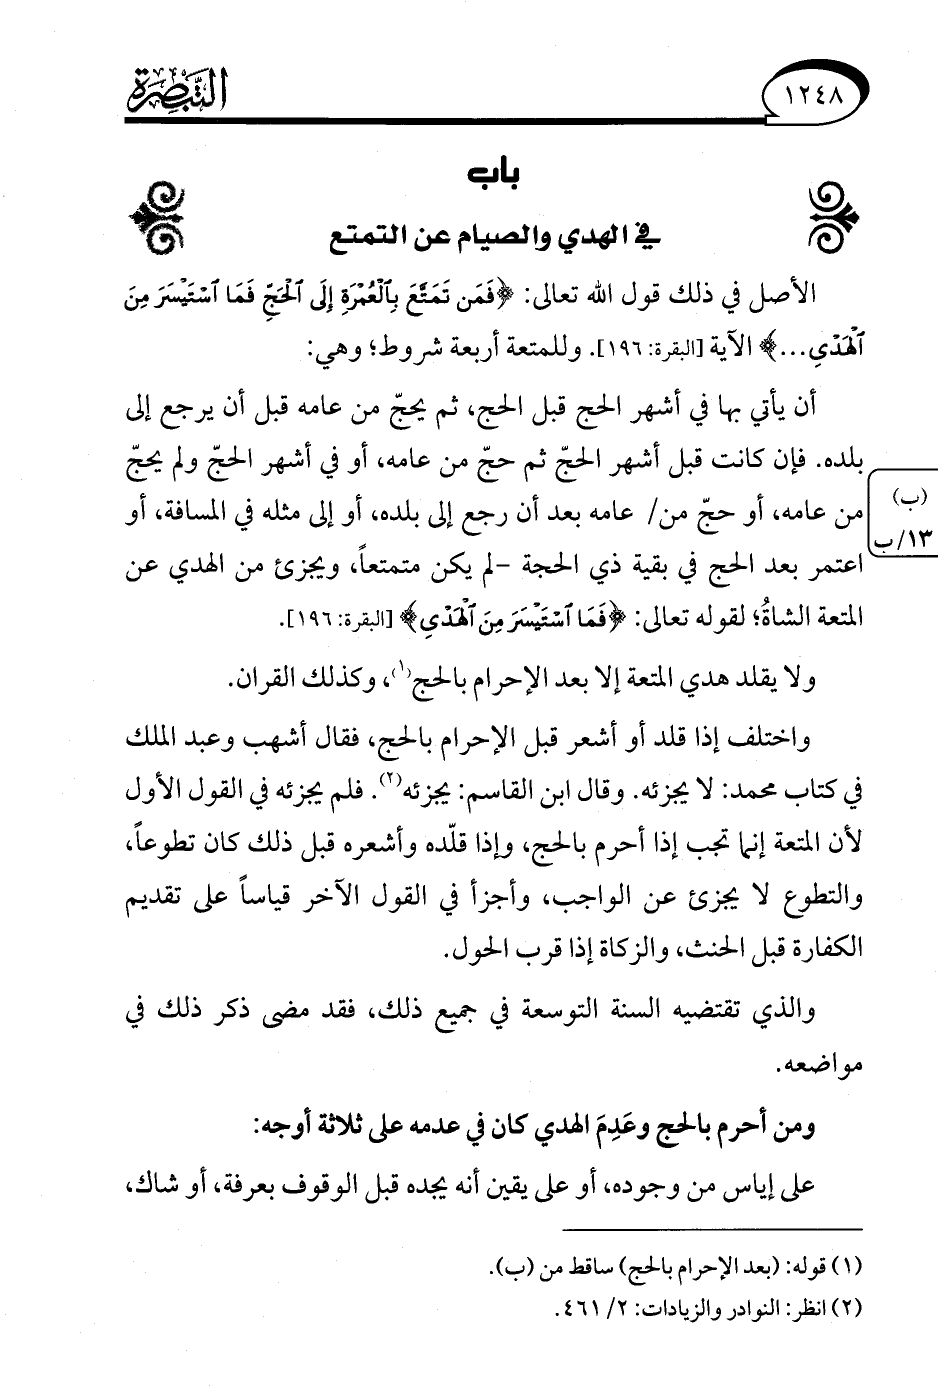 ١٢٤٨
التَّبْصِرَة
باب
في الهدي والصيام عن التمتع
الأصل في ذلك قول الله تعالى: ﴿فَمَن تَمَتَّعَ بِٱلْعُمْرَةِ إِلَى ٱلْحَجِّ فَمَا ٱسْتَيْسَرَ مِنَ
ٱلْهَدْيِ...﴾ الآية [البقرة: ١٩٦]. وللمتعة أربعة شروط؛ وهي:
أن يأتي بها في أشهر الحج قبل الحج، ثم يحجّ من عامه قبل أن يرجع إلى
بلده. فإن كانت قبل أشهر الحجّ ثم حجّ من عامه، أو في أشهر الحجّ ولم يحجّ
من عامه، أو حجّ من/ عامه بعد أن رجع إلى بلده، أو إلى مثله في المسافة، أو
(ب)
١٣/ب
اعتمر بعد الحج في بقية ذي الحجة -لم يكن متمتعاً، ويجزئ من الهدي عن
المتعة الشاةُ؛ لقوله تعالى: ﴿فَمَا ٱسْتَيْسَرَ مِنَ ٱلْهَدْيِ﴾ [البقرة: ١٩٦].
ولا يقلد هدي المتعة إلا بعد الإحرام بالحج(١)، وكذلك القران.
واختلف إذا قلد أو أشعر قبل الإحرام بالحج، فقال أشهب وعبد الملك
في كتاب محمد: لا يجزئه. وقال ابن القاسم: يجزئه(٢). فلم يجزئه في القول الأول
لأن المتعة إنما تجب إذا أحرم بالحج، وإذا قلّده وأشعره قبل ذلك كان تطوعاً،
والتطوع لا يجزئ عن الواجب، وأجزأ في القول الآخر قياساً على تقديم
الكفارة قبل الحنث، والزكاة إذا قرب الحول.
والذي تقتضيه السنة التوسعة في جميع ذلك، فقد مضى ذكر ذلك في
مواضعه.
ومن أحرم بالحج وعَدِمَ الهدي كان في عدمه على ثلاثة أوجه:
على إياس من وجوده، أو على يقين أنه يجده قبل الوقوف بعرفة، أو شاك،
(١) قوله: (بعد الإحرام بالحج) ساقط من (ب).
(٢) انظر: النوادر والزيادات: ٢/ ٤٦١.